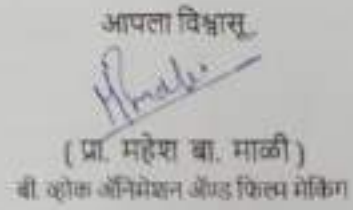 आपला विश्वासू
( प्रा. महेश बा. माळी )
बी. व्होक ॲनिमेशन ॲण्ड फिल्म मेकिंग